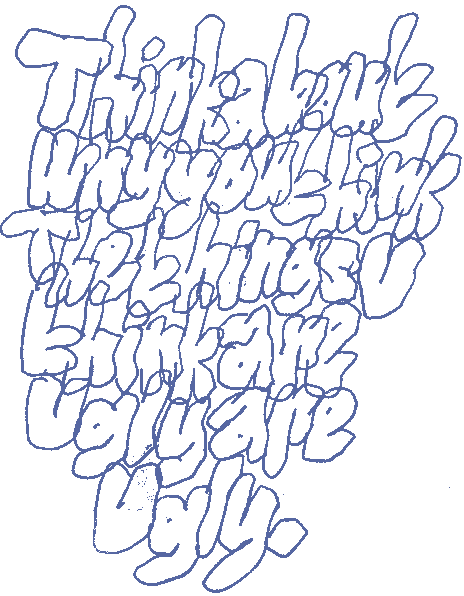 Think about
Why you think
The things U
think are
Ugly are
Ugly.